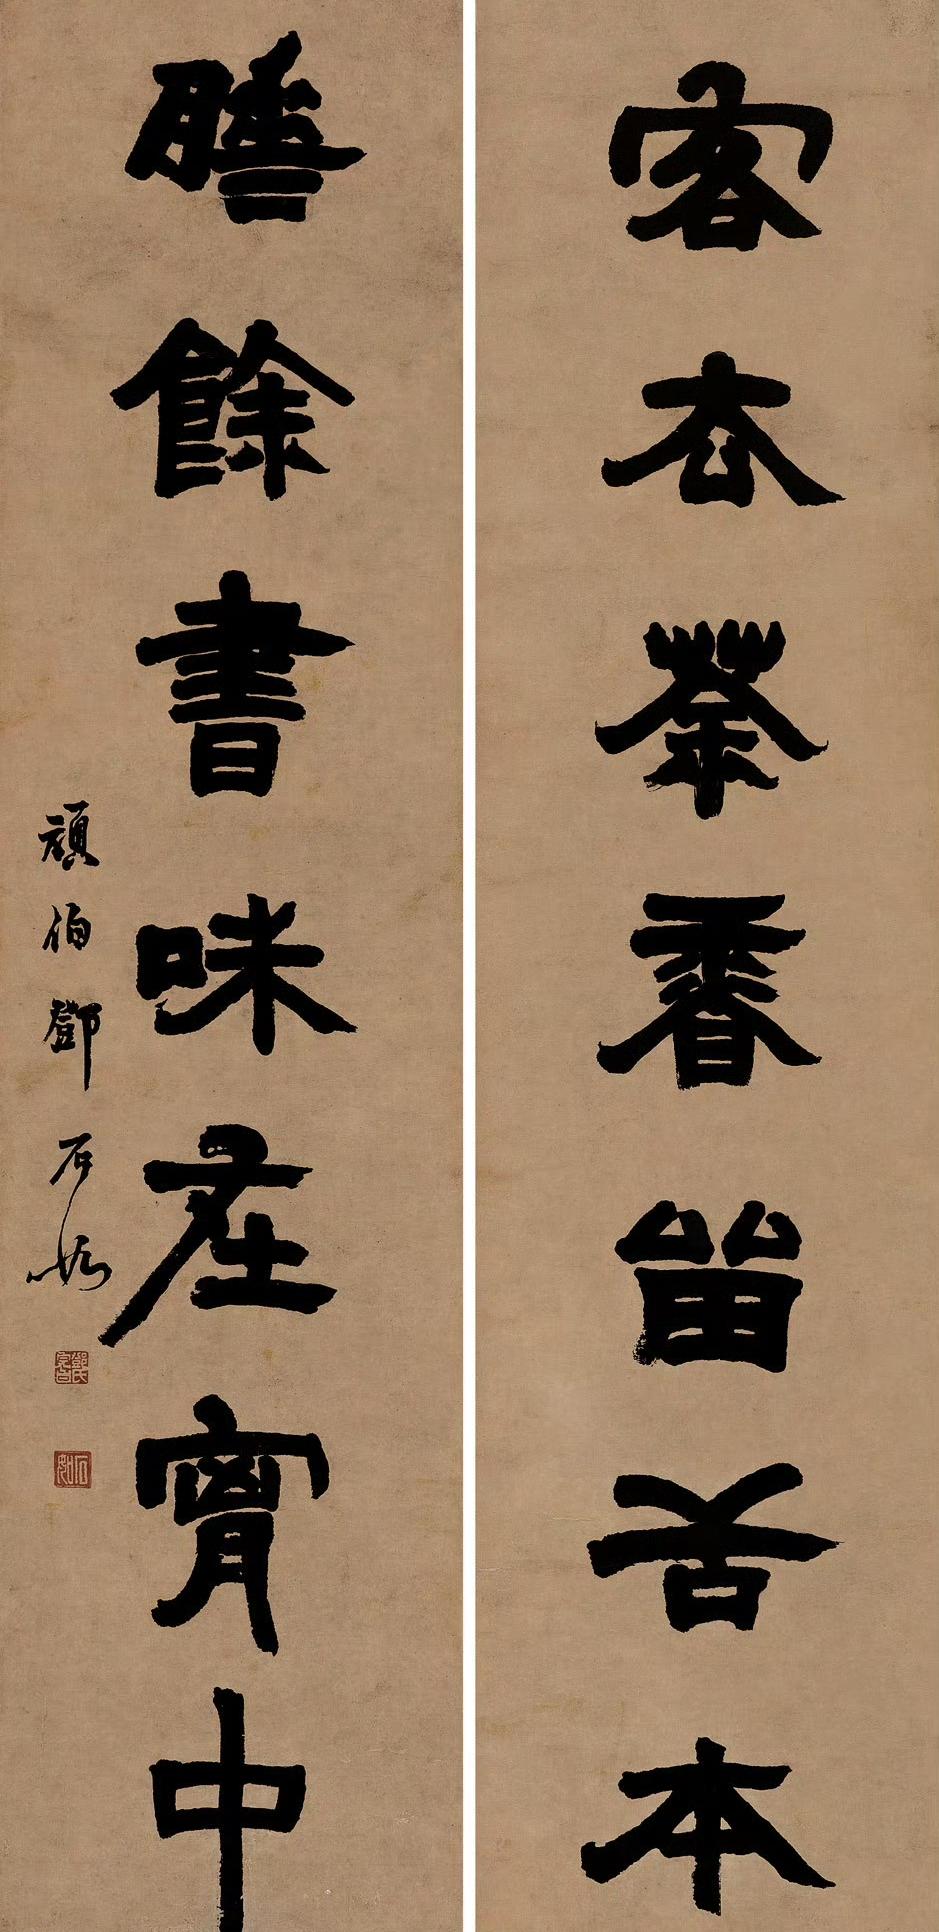 客去茶香留舌本
睡餘書味在胷中
頑伯鄧石如
鄧氏完白
石如